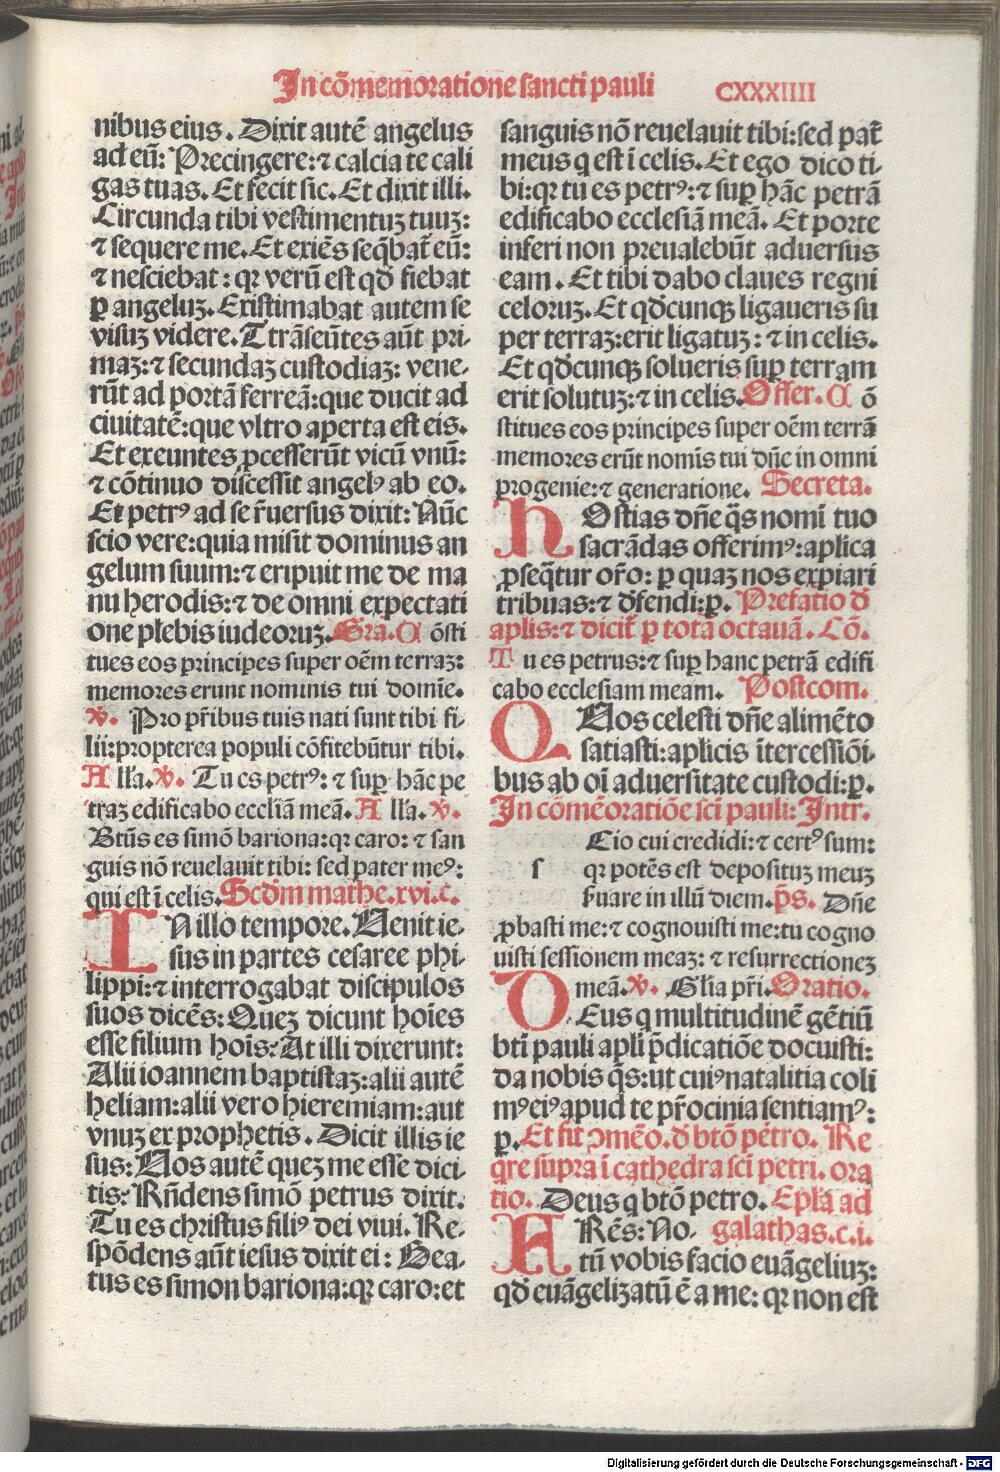 In cōmemoratione sancti pauli CXXXIIII
nibus eius. Dixit autē angelus
ad eū: Precingere: ⁊ calcia te cali
gas tuas. Et fecit sic. Et dixit illi.
Circunda tibi vestimentuꝫ tuuꝫ:
⁊ sequere me. Et exiēs seq̄bat̄ eū:
⁊ nesciebat: qꝛ verū est qd̄ fiebat
ꝑ angeluꝫ. Existimabat autem se
visuꝫ videre. Trāseūtes aūt pri-
maꝫ: ⁊ secundaꝫ custodiaꝫ: vene-
rūt ad portā ferreā: que ducit ad
ciuitatē: que vltro aperta est eis.
Et exeuntes ꝓcesserūt vicū vnū:
⁊ cōtinuo discessit angelꝰ ab eo.
Et petrꝰ ad se r̄uersus dixit: Nūc
scio vere: quia misit dominus an
gelum suum: ⁊ eripuit me de ma
nu herodis: ⁊ de omni expectati
one plebis iudeoruꝫ. Gra. Cōsti
tues eos principes super oēm terraꝫ:
memores erunt nominis tui domīe.
℣. Pro pr̄ibus tuis nati sunt tibi fi-
lii: propterea populi cōfitebūtur tibi.
Alla. ℣. Tu es petrꝰ: ⁊ suꝑ hāc pe
traꝫ edificabo ecclīā meā. Alla. ℣.
Btūs es simō bariona: qꝛ caro: ⁊ san
guis nō reuelauit tibi: sed pater meꝰ:
qui est ī celis. Scd̄m mathe. xvi. c.
IN illo tempore. Uenit ie-
sus in partes cesaree phi-
lippi: ⁊ interrogabat discipulos
suos dicēs: Queꝫ dicunt hoīes
esse filium hoīs: At illi dixerunt:
Alii ioannem baptistaꝫ: alii autē
heliam: alii vero hieremiam: aut
vnuꝫ ex prophetis. Dicit illis ie
sus: Uos autē queꝫ me esse dici
tis: Rn̄dens simō petrus dixit.
Tu es christus filiꝰ dei viui. Re-
spōdens aūt iesus dixit ei: Bea-
tus es simon bariona: qꝛ caro: et
sanguis nō reuelauit tibi: sed pat̄
meus q est ī celis. Et ego dico ti-
bi: qꝛ tu es petrꝰ: ⁊ suꝑ hāc petrā
edificabo ecclesiā meā. Et porte
inferi non preualebūt aduersus
eam. Et tibi dabo claues regni
celoruꝫ. Et qd̄cunqꝫ ligaueris su
per terraꝫ: erit ligatuꝫ: ⁊ in celis.
Et qd̄cunqꝫ solueris suꝑ terram
erit solutuꝫ: ⁊ in celis. Offer. Cō
stitues eos principes super oēm terrā
memores erūt nomīs tui dn̄e in omni
progenie: ⁊ generatione. Secreta.
HOstias dn̄e q̄s nomī tuo
sacrādas offerimꝰ: aplica
ꝓseq̄tur or̄o: ꝑ quaꝫ nos expiari
tribuas: ⁊ d̄fendi: ꝑ. Prefatio d̄
aplis: ⁊ dicit̄ ꝑ totā octauā. Cō.
Tu es petrus: ⁊ suꝑ hanc petrā edifi
cabo ecclesiam meam. Postcom.
QUos celesti dn̄e alimēto
satiasti: aplicis ītercessiōi
bus ab oī aduersitate custodi: ꝑ.
In cōmēoratiōe sci pauli: Intr.
sCio cui credidi: ⁊ certꝰ sum:
qꝛ potēs est depositum meuꝫ
s̄uare in illū diem. ps. Dn̄e
ꝓbasti me: ⁊ cognouisti me: tu cogno
uisti sessionem meaꝫ: ⁊ resurrectioneꝫ
meā. ℣. Glīa pr̄i. Oratio.
DEus q multitudinē gētiū
bti pauli apli p̄dicatiōe docuisti:
da nobis q̄s: ut cuiꝰ natalitia coli
mꝰ eiꝰ apud te pr̄ocinia sentiamꝰ:
ꝑ. Et fit ↄmēo. d̄ btō petro. Re
q̄re supra ī cathedra sci petri. ora
tio. Deus q btō petro. Epla ad
galathas. c. i.
FRēs: No-
tū vobis facio euāgeliuꝫ:
qd̄ euāgelizatū ē a me: qꝛ non est
Digitalisierung gefördert durch die Deutsche Forschungsgemeinschaft - DFG